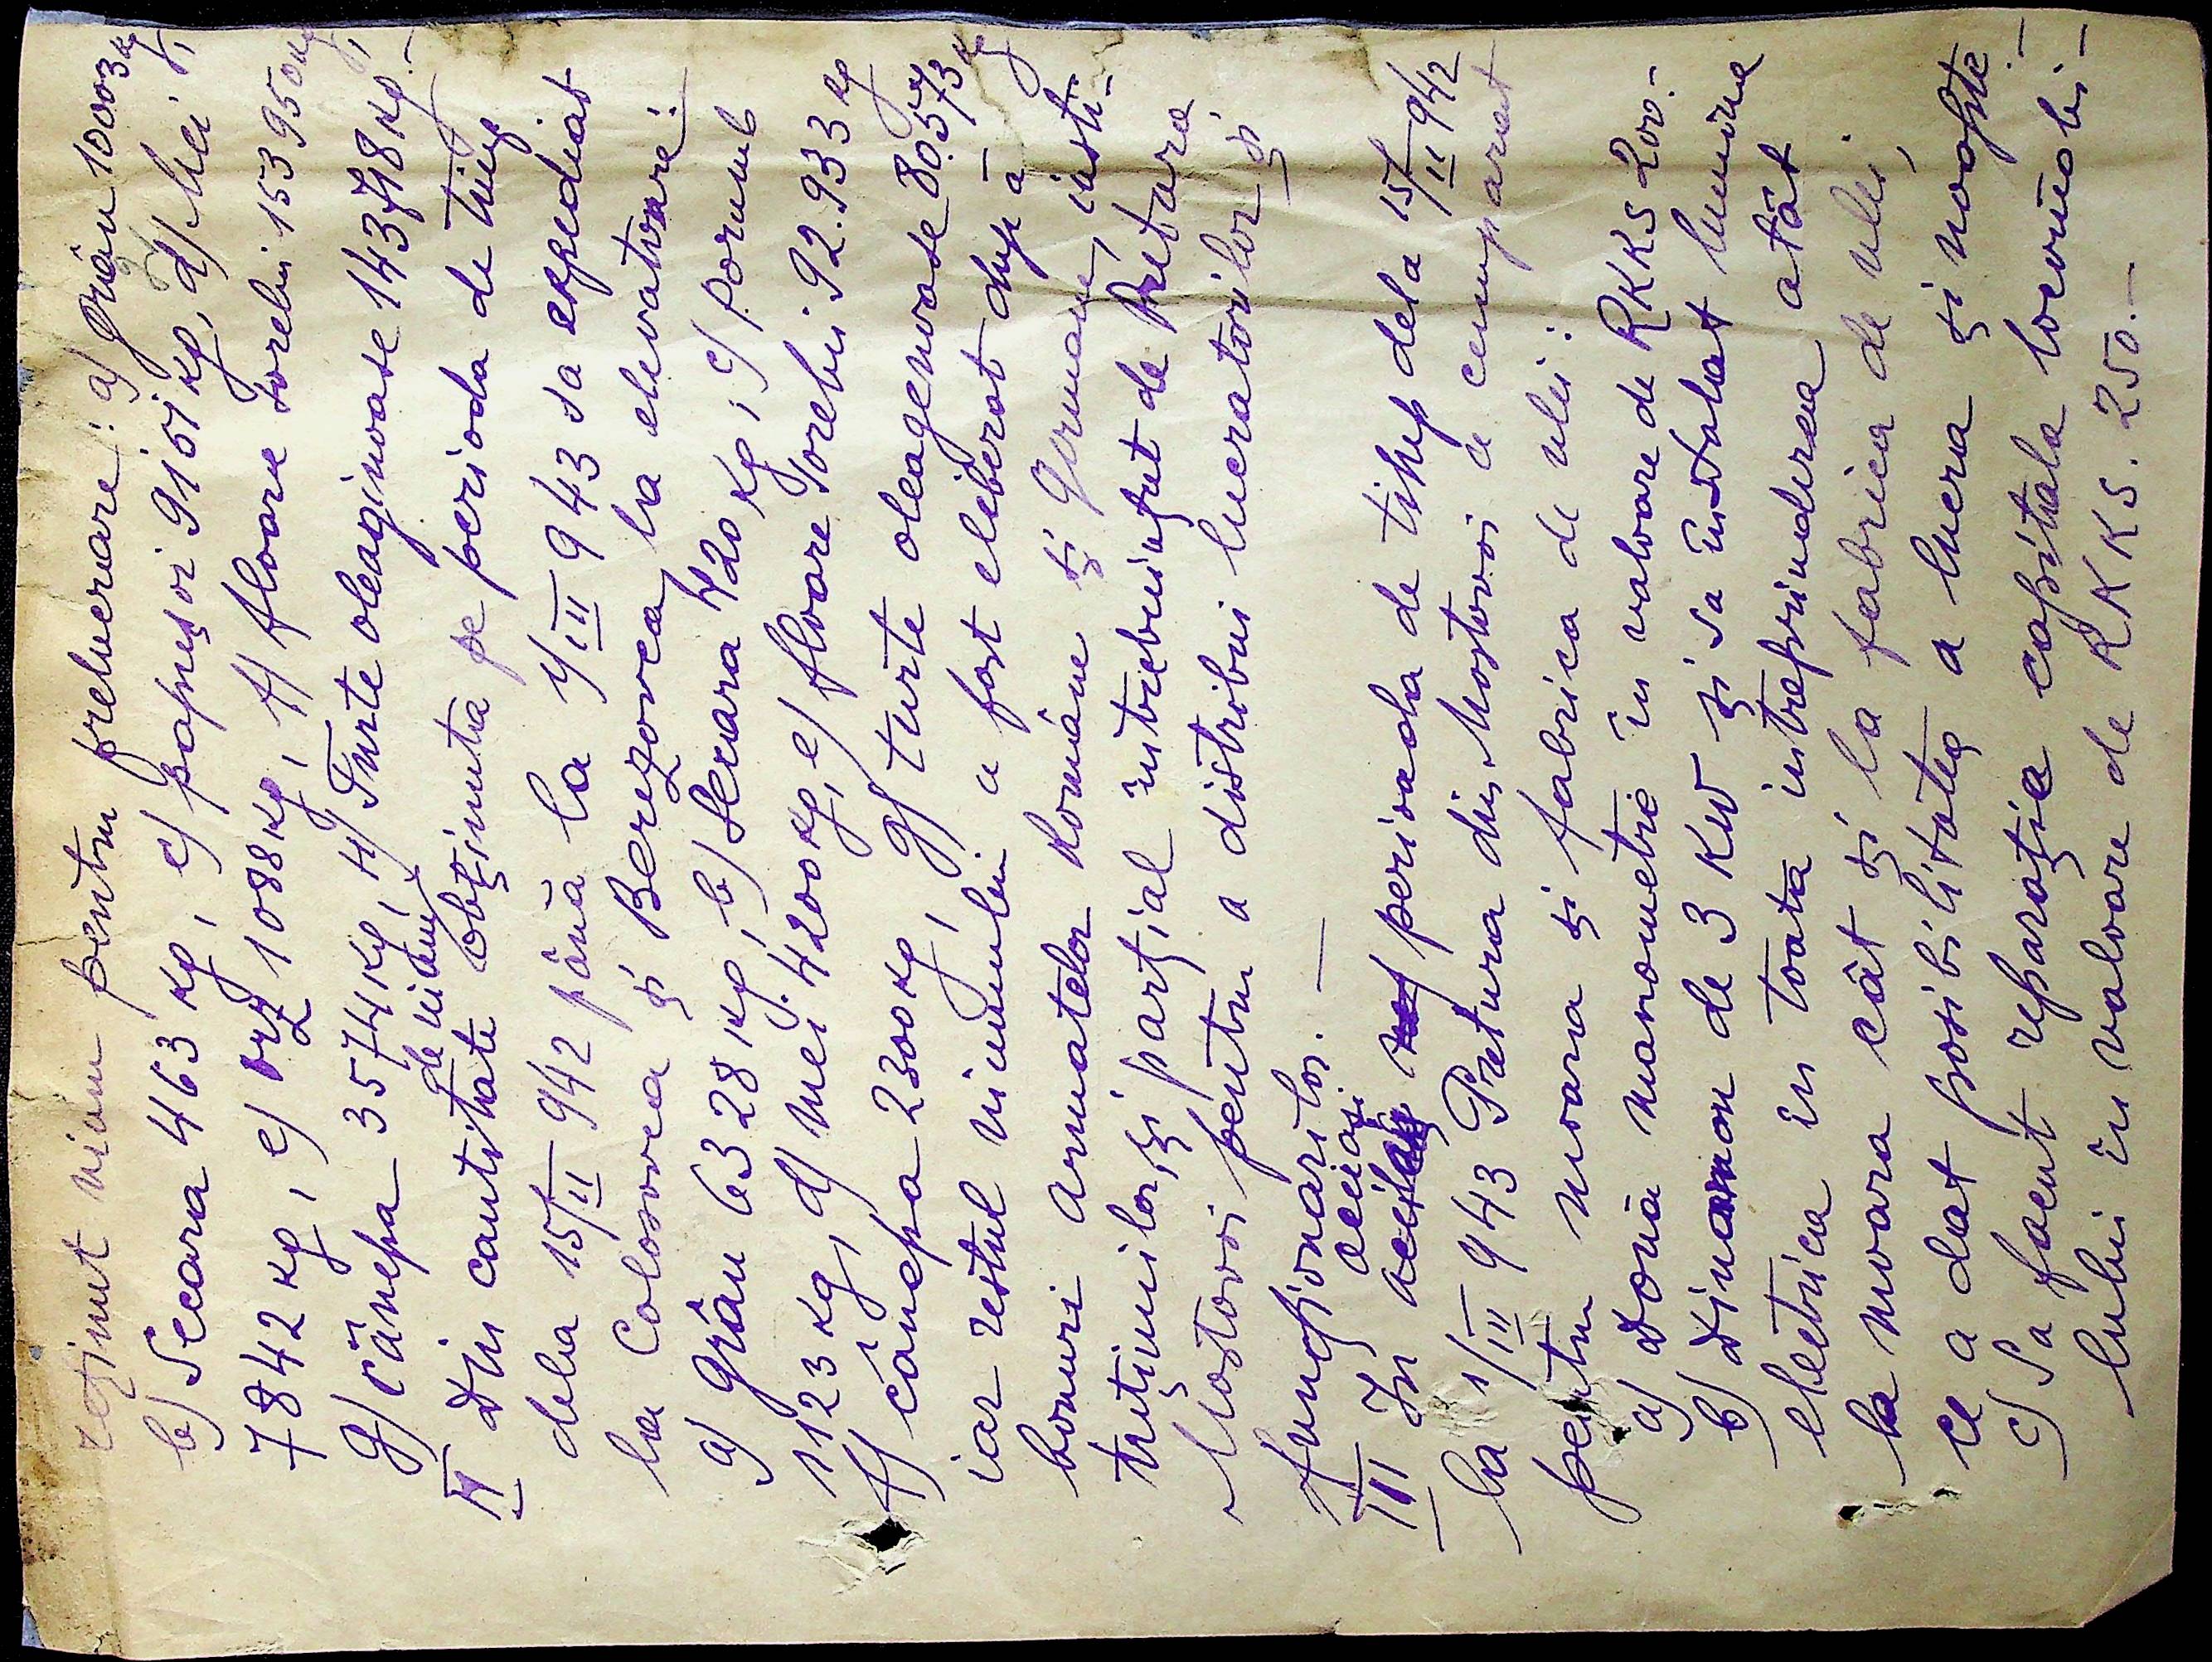 reținut uium pentru preluerare: a) Grâu 10003 kg
b) Secara 463 kg, c) popușoi 91501 kg, d) Mei
7842 kg, e) orz 1088 kg, f) floare sorelui 153950 kg,
g) cânepa 3574 kg, H) Turte oleaginoase 143718 kg.-
de uium
II Din cantitate obținuta pe perioda de timp
dela 15/II 942 pâna la 1/III 943 sa expediat
la Colosova și Berezovca la elevatoare:
a) Grâu 6328 kg, b) Secara 420 kg, c) porumb
1123 kg, d) mei 4200 kg, e) floare Sorelui 92.933 kg
f) cânepa 2300 kg, g) turte oleagenoase 80573 kg
iar restul uiumului a fost eliberat după
bonuri armatelor Române și Germane, insti-
tuțiunilor, și parțial întrebuințat de Pretura
Mostovoi pentru a distribui lucratorilor și
funcționarilor. —
aceiași
III In perioada de timp dela 15/II 942
la 1/III 943 Pretura din Mostovoi a cumparat
pentru moara și fabrica de ulei:
a) Doua manometre in valoare de RKKS 200.-
b) Dinamon de 3 KW și sa instalat lumina
eletrica in toata intreprinderea atât
la moara cât și la fabrica de ulei,
ce a dat posibilitatea a lucra și noaptea.-
c) Sa facut reparație capitala locomobi-
lului in valoare de RKKS. 250.—